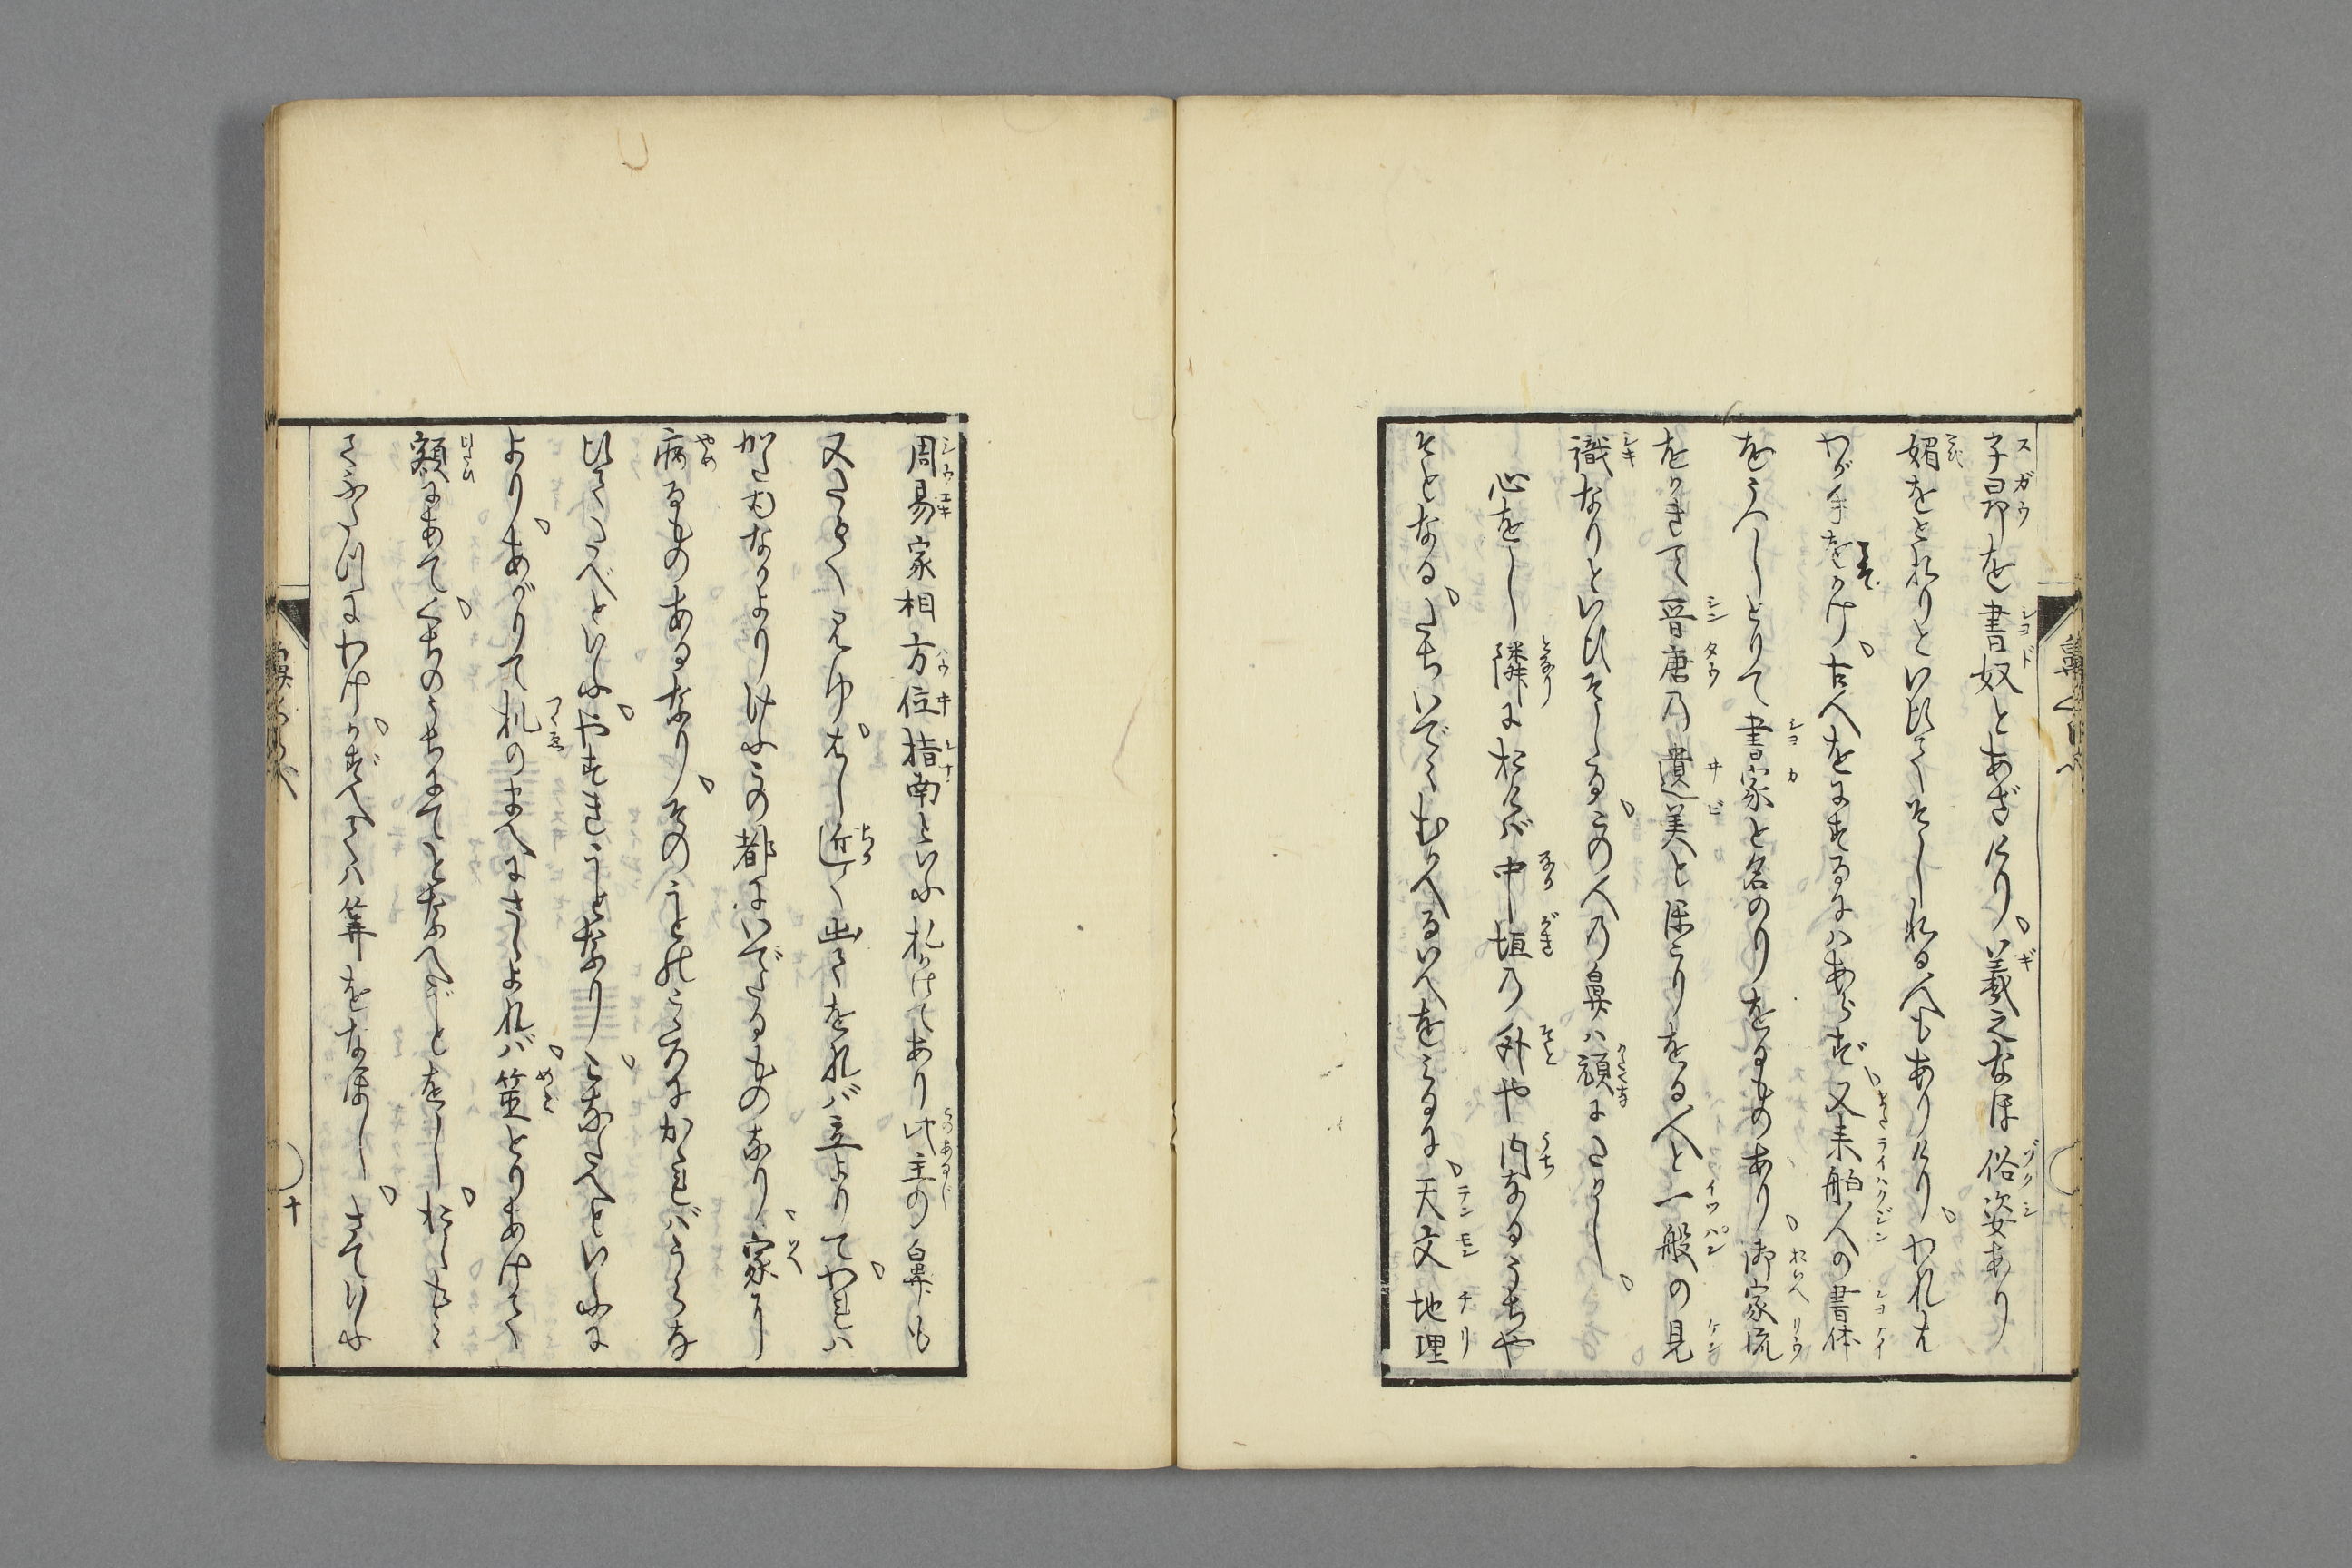 子昂を書奴とあざけり。義之なほ俗姿あり
媚をとれりといひてそしれる人もありけり。われは
わが手をかけ。古人をにするにはあらず。又来舶人の書体
をうつしとりて書家と名のりをるものあり。御家流
をかきて晋唐乃遺美とほこりをる人と一般の見
識なりといひそしる。この人乃鼻は頑にたかし。
心をし隣におけば中垣乃外や内なるうちや
そとなる。たちいでゝむかへるいへをみるに。天文地理
周易家相方位指南といふ札かけてあり此主の鼻も
又たかく見ゆ。はし近く出てをれば立よりて。われは
かたゐなかよりけふこの都にいでたるものなり。家に
病るものあるなり。そのうへの
ひてたべといふ。やすきことなり。こなたへといふに
より。あがりて机のまへにさしよれば。筮とりあげて
額にあて。くちのうちにてとなへごとをし。おしもみ
てふたつにわけ。かぞへては算をなほし。さていふ
鼻くらべ
十